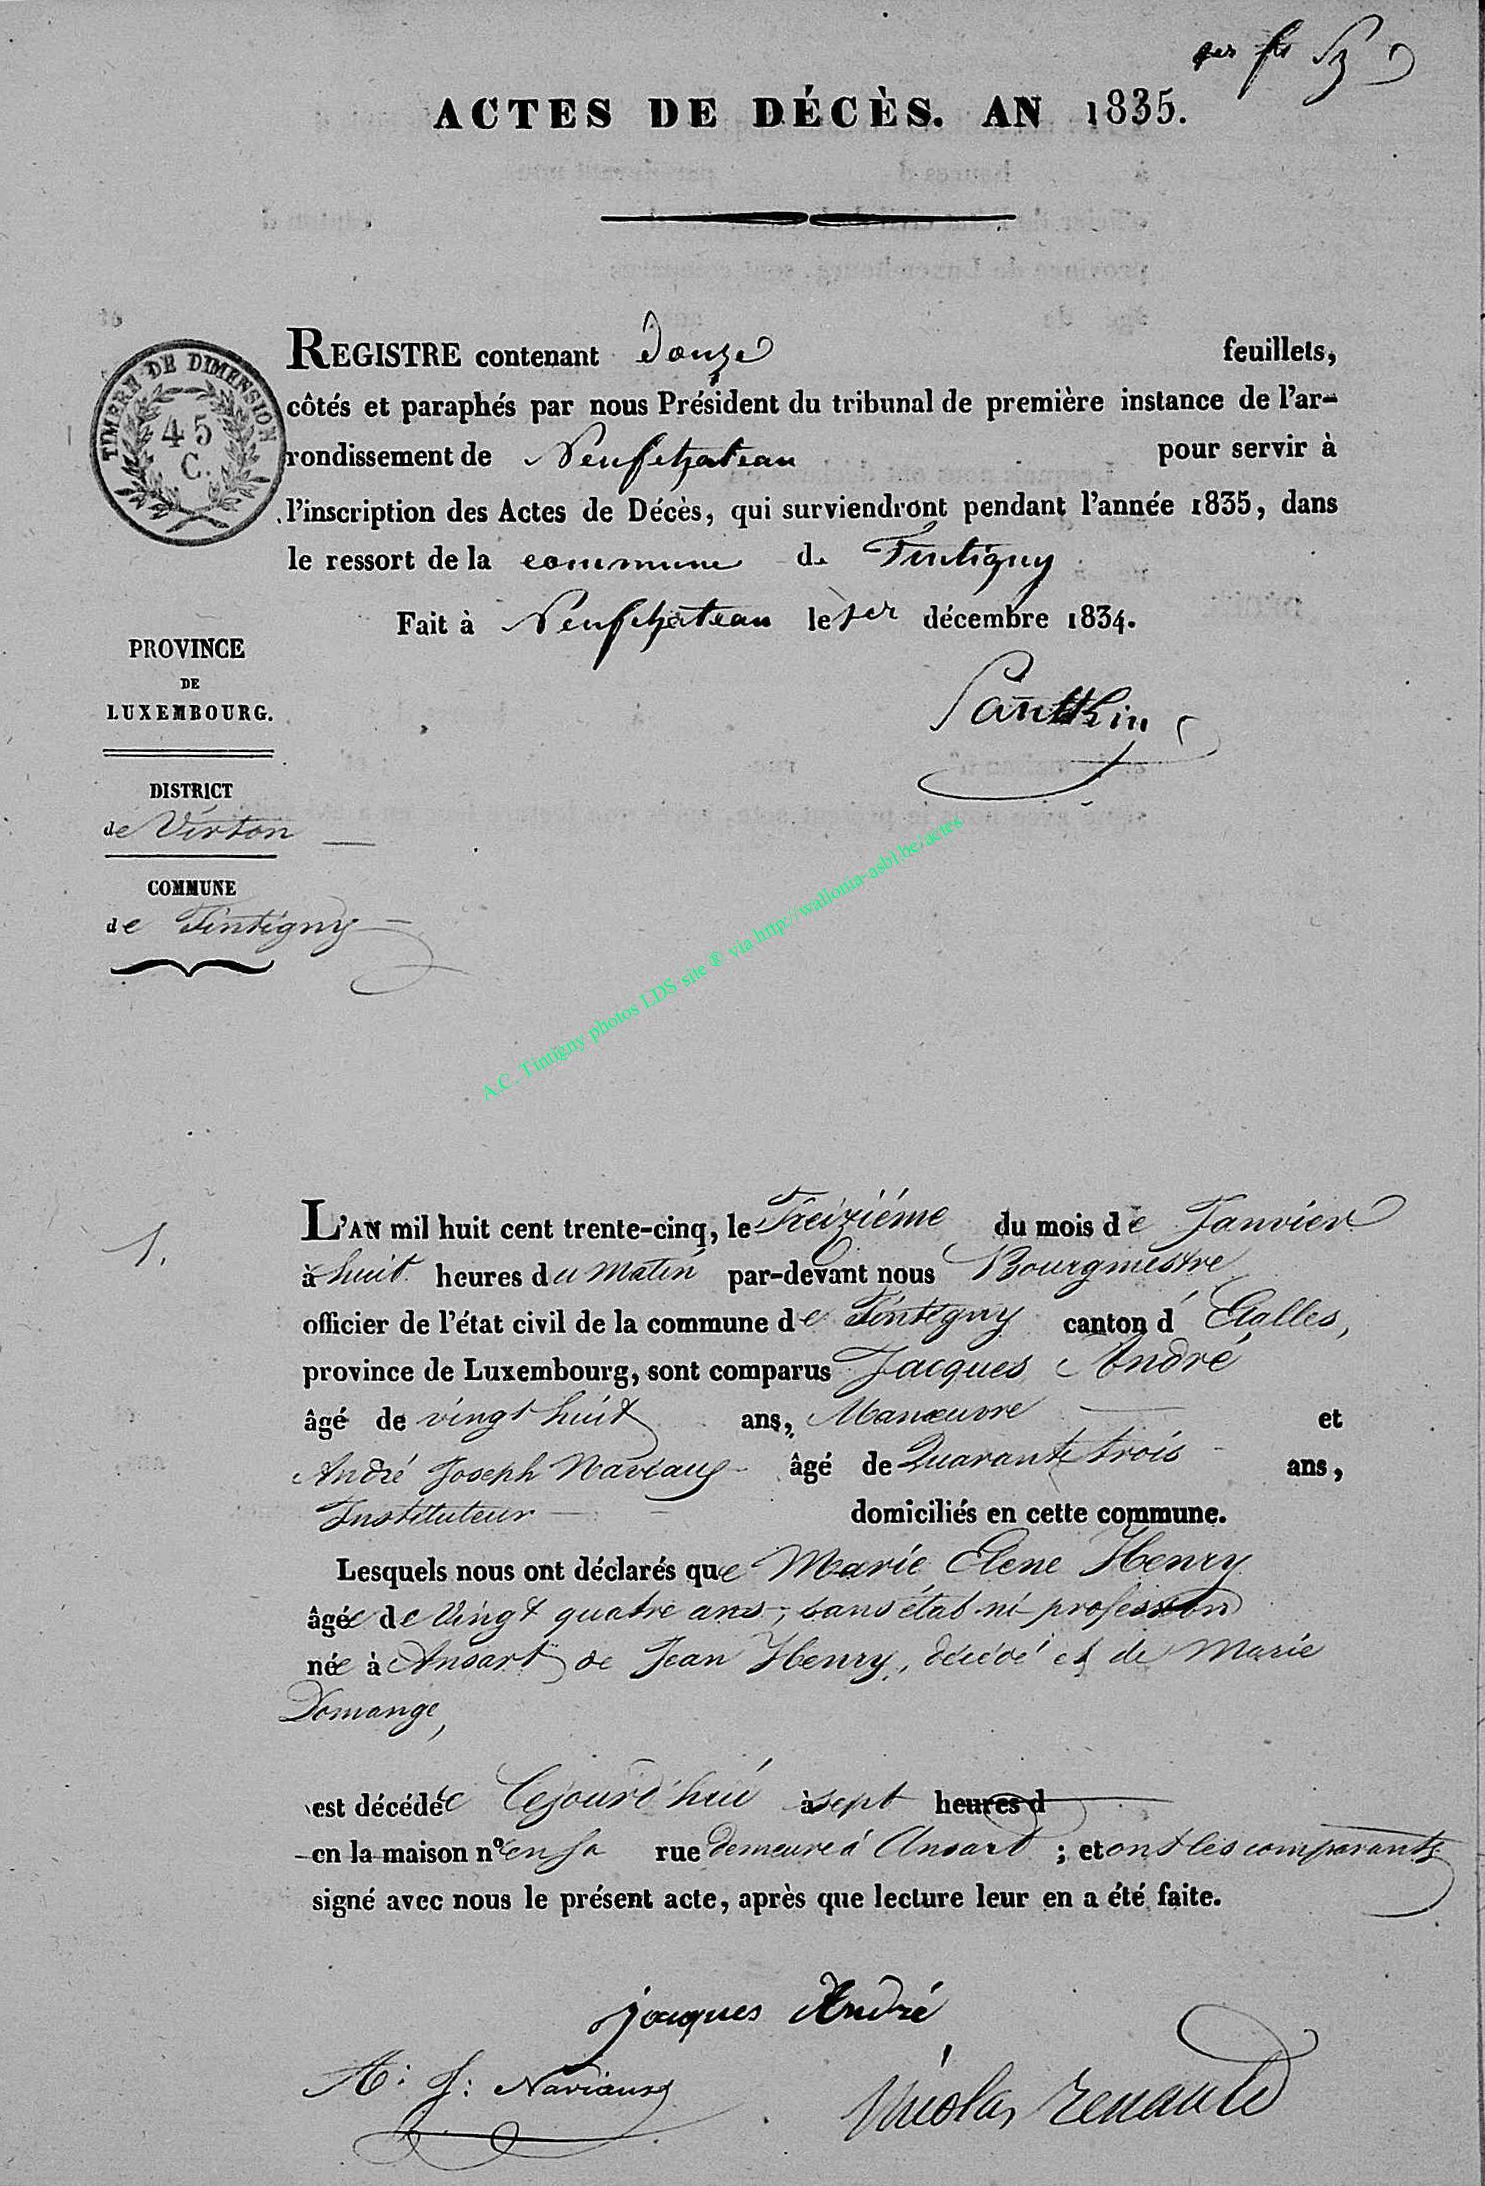 1er ft
ACTES DE DÉCÈS. AN 1835.
REGISTRE contenant Douze feuillets,
côtés et paraphés par nous Président du tribunal de première instance de l'ar-
rondissement de Neufchateau pour servir à
l'inscription des Actes de Décès, qui surviendront pendant l'année 1835, dans
le ressort de la commune de Tintigny
Fait à Neufchateau le 1er décembre 1834.
TIMBRE DE DIMENSION
45
C.
PROVINCE
DE
LUXEMBOURG.
DISTRICT
de Virton
COMMUNE
de Tintigny
A.C. Tintigny photos LDS site ® via http://wallonia-asbl.be/actes
1.
L'AN mil huit cent trente-cinq, le Treiziéme du mois de Janvier
à huit heures du matin par-devant nous Bourgmestre
officier de l'état civil de la commune de Tintigny canton d'Etalles,
province de Luxembourg, sont comparus Jacques André
âgé de vingt huit ans, Manœuvre et
André Joseph Naviaux âgé de Quarante trois ans,
Instituteur domiciliés en cette commune.
Lesquels nous ont déclarés que Marie Elene Henry
âgée de Vingt quatre ans, sans état ni profession
née à Ansart de Jean Henry, décédé et de Marie
Domange,
est décédée Cejourd'hui à sept heures d
en la maison n° en sa rue demeure à Ansart ; et ont les comparants
signé avec nous le présent acte, après que lecture leur en a été faite.
jacques André
A: J: Naviaux
Nicolas renauld